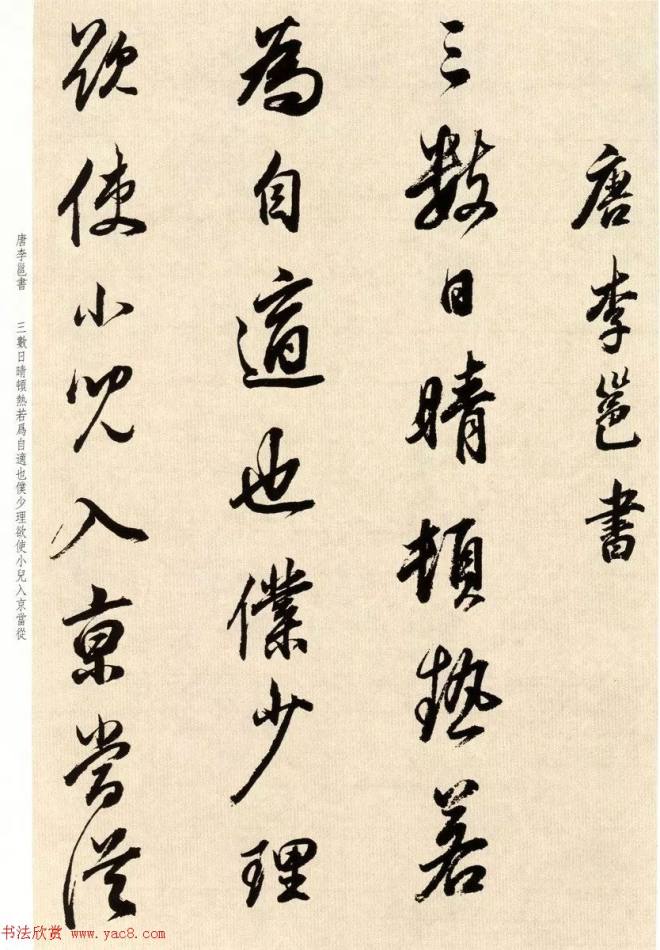 唐李邕書
三數日晴頓熱若
為自適也僕少理
欲使小兒入京當從
唐李邕書　三數日晴頓熱若爲自適也僕少理欲使小兒入京當從
书法欣赏 www.yac8.com